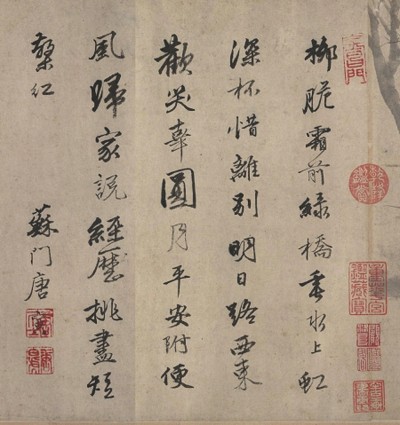 柳脆霜前綠橋垂水上虹
深杯惜離別明日路西東
歡笑幸圓月平安附便
風歸家說經歷挑盡短
檠紅
蘇門唐寅